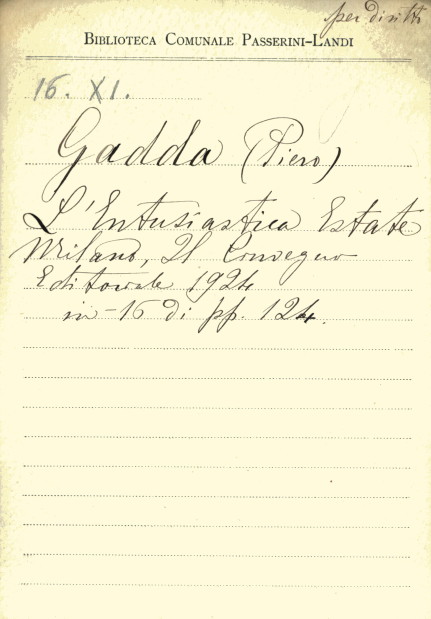 per diritti
BIBLIOTECA COMUNALE PASSERINI-LANDI
16. XI.
Gadda (Piero)
L'Entusiastica Estate
Milano, Il Convegno
Editoriale 1924
in-16 di pp. 124.